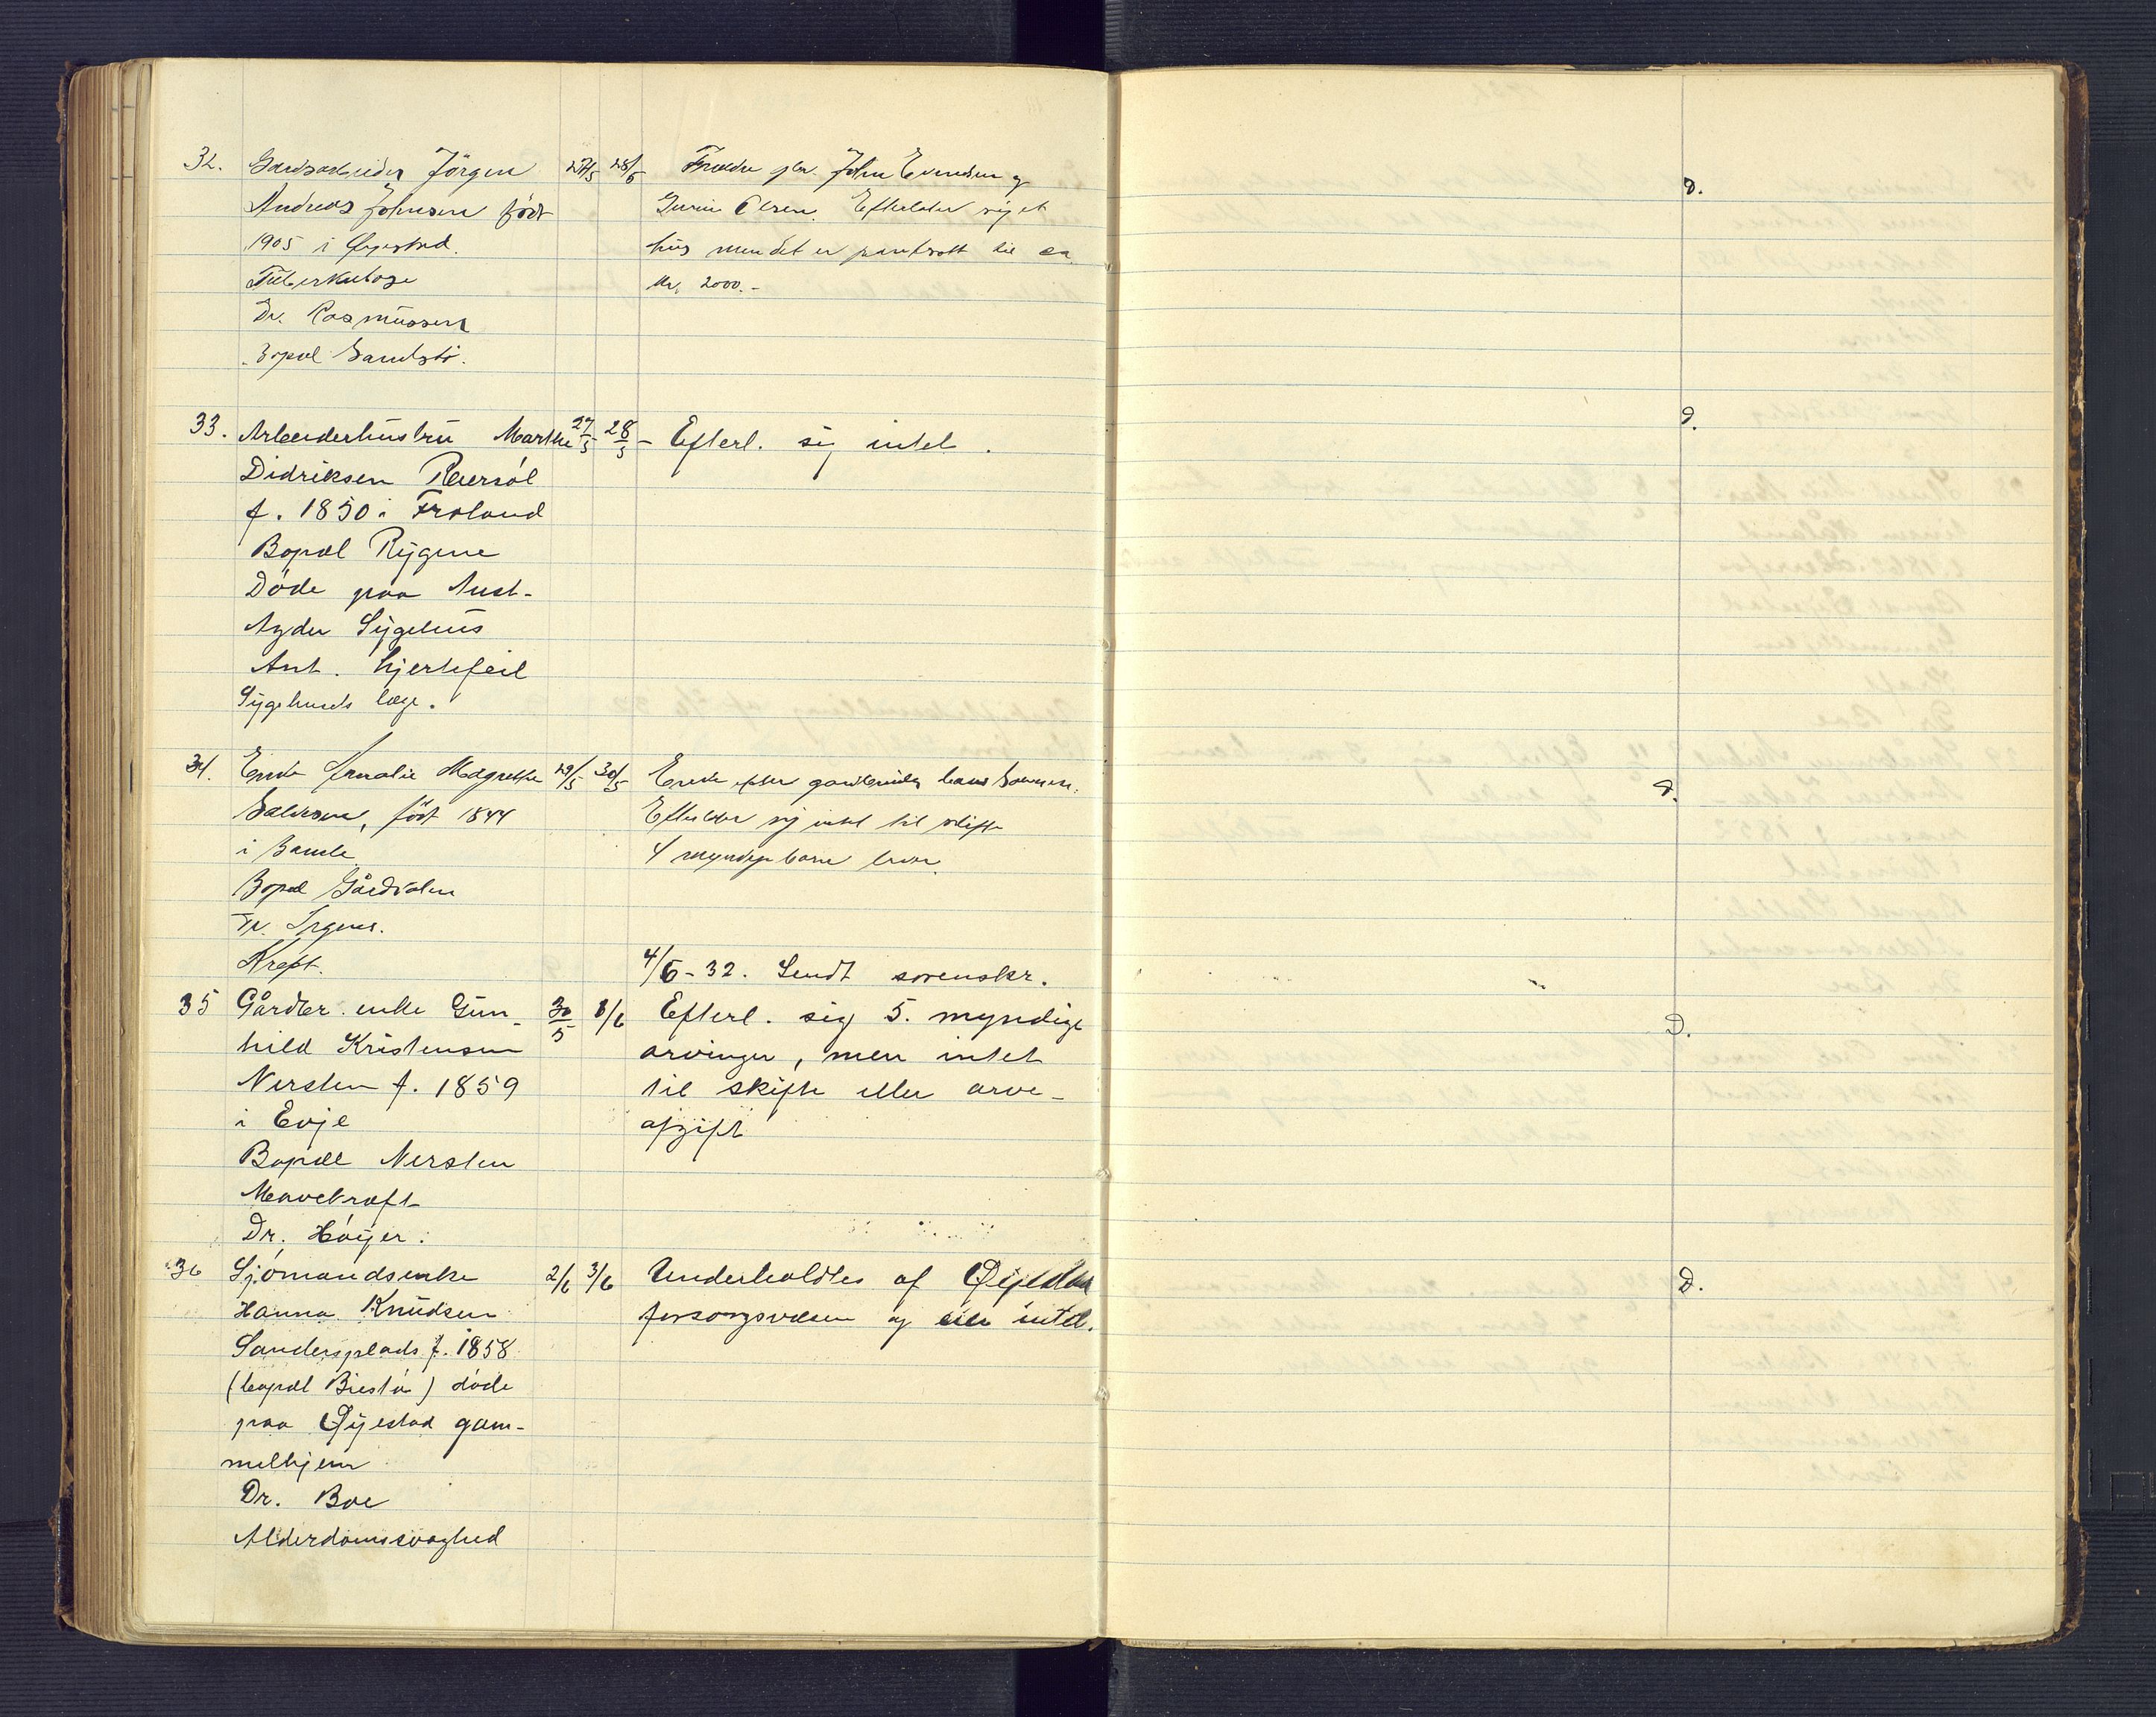 32. Gaardsarbeider Jörgen 27/5 28/5
Andreas Johnsen födt
1905 i Øyestad.
Tuberkulose
Dr. Rasmussen
Bopæl Sandstö.
Foreldre John Evensen og
Olsen. Efterlater sig et
hus men det er pantsatt til ca.
kr. 2000.-
D.
33. Arbeiderhustru Marthe 27/5 28/5 - Efterl. sig intet.
Didriksen Reersöl
f. 1850 i Froland
Bopæl Rygene
Döde paa Aust-
Agder Sygehus
Ant. hjertefeil
Sygehusets læge.
D.
34. Enke Amalie Margrethe 29/5 30/5
Salvesen, födt 1844
i Bamle
Bopæl Gårdsalen
Dr. Irgens.
Kreft.
Enke efter hans
Efterlater sig intet til skifte
4 myndige barn lever.
D.
4/6-32. Sendt sorenskr.
35 Gårdbr. enke Gun- 30/5 1/6 Efterl. sig 5. myndige
hild Kristensen arvinger, men intet
Nersten f. 1859 til skifte eller arve-
i Evje afgift
Bopæl Nersten
Mavekræft
Dr. Höyer.
D.
36 Sjömandsenke 2/6 3/6 Underholdtes af Øyestad
Hanna Knudsen forsorgsvæsen og eier intet.
Sandersplads f. 1858
(bopæl Biestö) döde
paa Øyestad gam-
melhjem
Dr. Boe
Alderdomssvaghed
D.